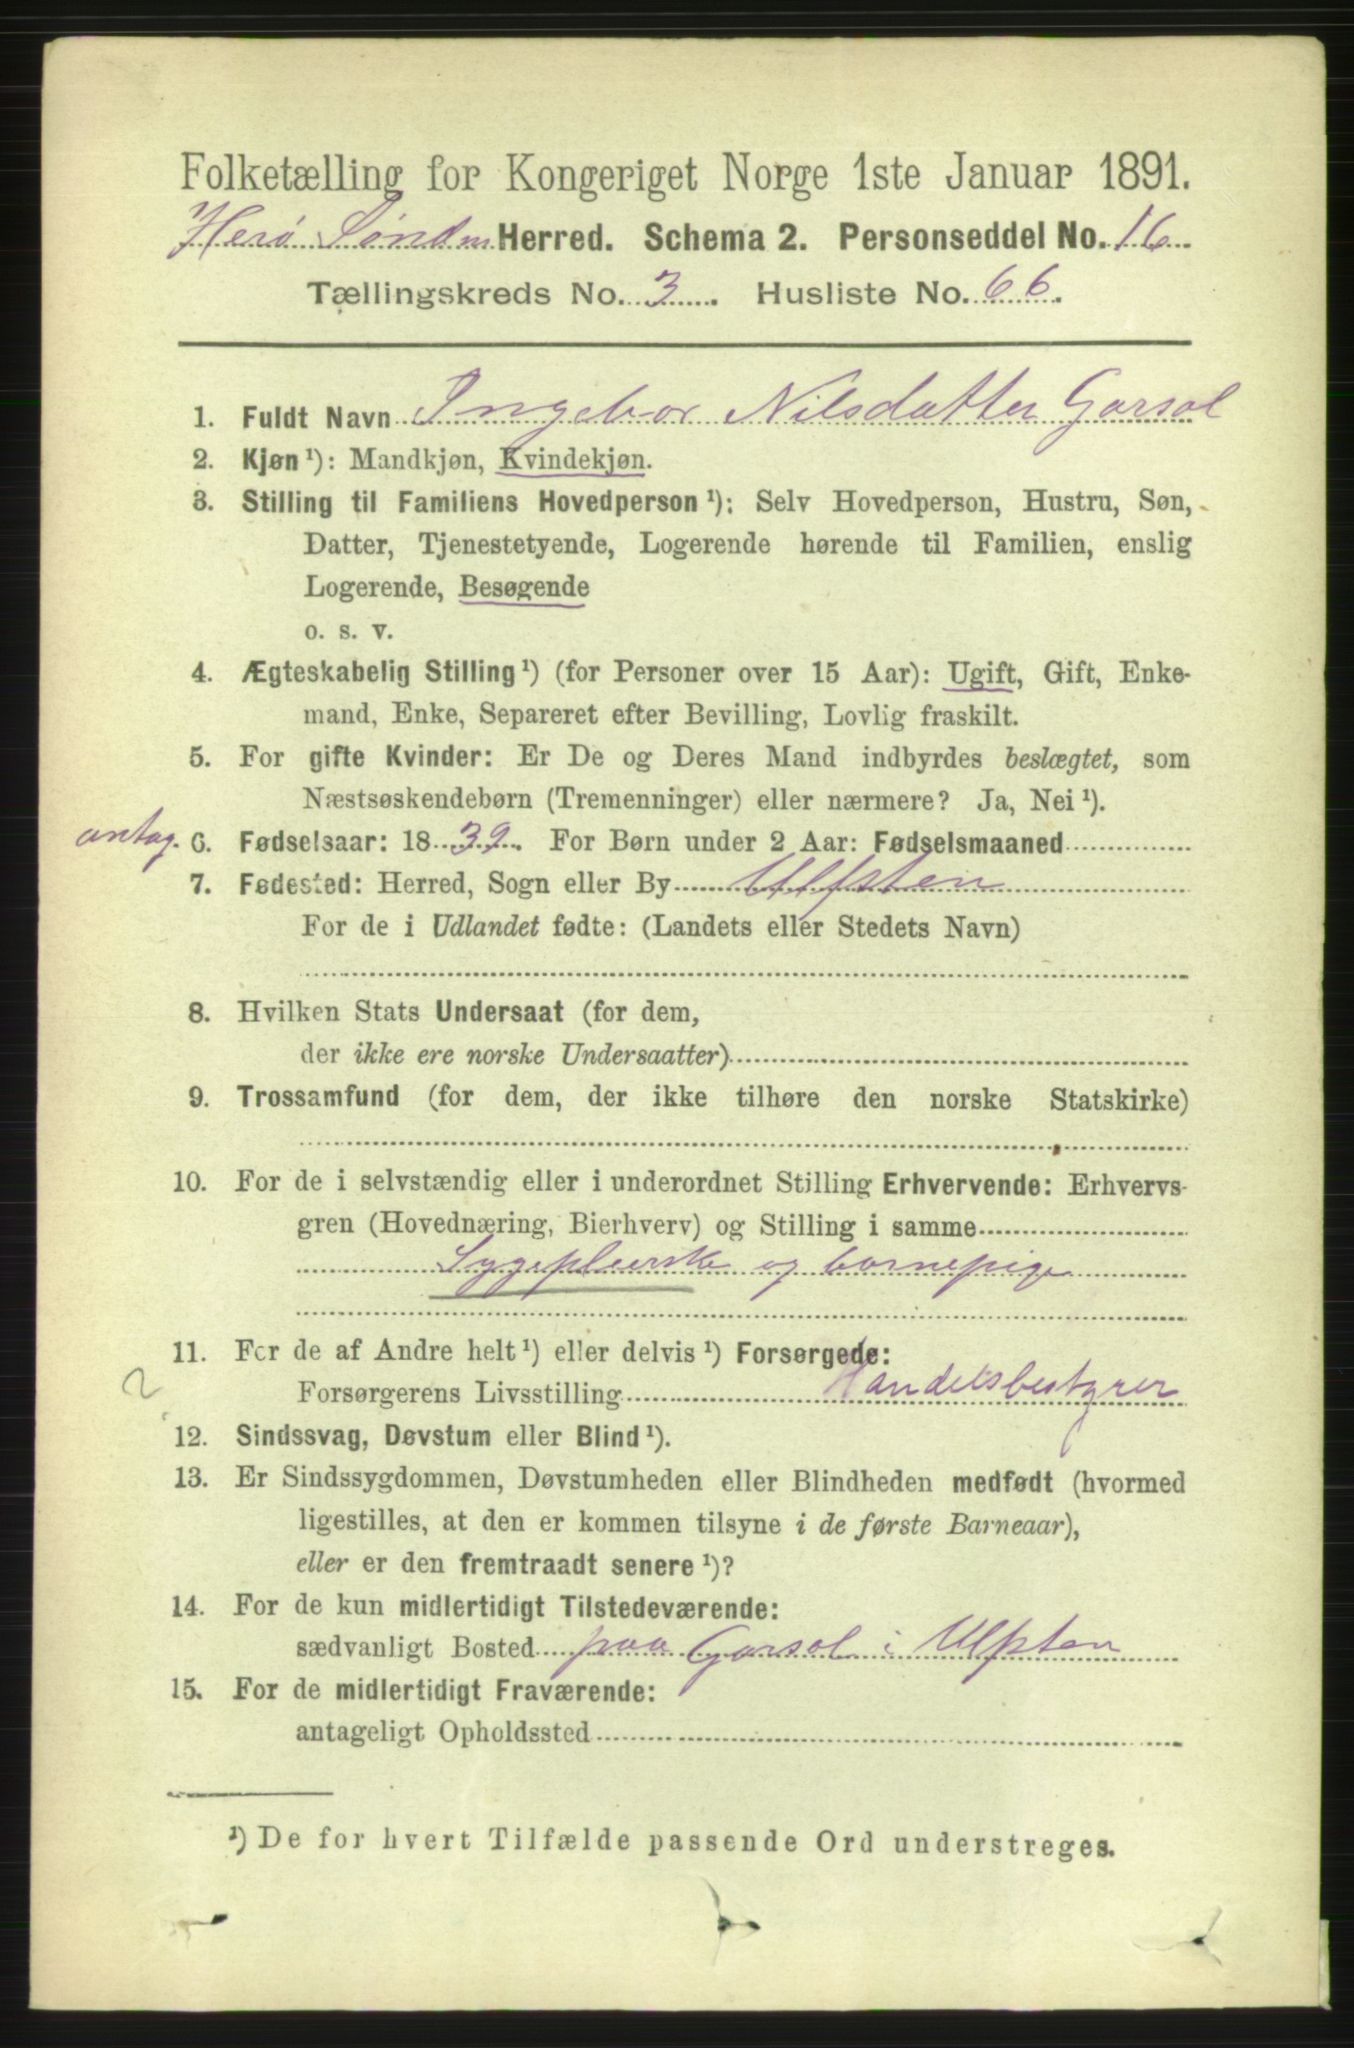 Folketælling for Kongeriget Norge 1ste Januar 1891.
Herø Søndm Herred. Schema 2. Personseddel No. 16
Tællingskreds No. 3. Husliste No. 66.
1. Fuldt Navn Ingebor Nilsdatter Garsol
2. Kjøn ¹): Mandkjøn, Kvindekjøn.
3. Stilling til Familiens Hovedperson ¹): Selv Hovedperson, Hustru, Søn,
Datter, Tjenestetyende, Logerende hørende til Familien, enslig
Logerende, Besøgende
o. s. v.
4. Ægteskabelig Stilling ¹) (for Personer over 15 Aar): Ugift, Gift, Enke-
mand, Enke, Separeret efter Bevilling, Lovlig fraskilt.
5. For gifte Kvinder: Er De og Deres Mand indbyrdes beslægtet, som
Næstsøskendebørn (Tremenninger) eller nærmere? Ja, Nei ¹).
antag. 6. Fødselsaar: 1839. For Børn under 2 Aar: Fødselsmaaned
7. Fødested: Herred, Sogn eller By Ulfsten
For de i Udlandet fødte: (Landets eller Stedets Navn)
8. Hvilken Stats Undersaat (for dem,
der ikke ere norske Undersaatter)
9. Trossamfund (for dem, der ikke tilhøre den norske Statskirke)
10. For de i selvstændig eller i underordnet Stilling Erhvervende: Erhvervs-
gren (Hovednæring, Bierhverv) og Stilling i samme
Sygepleierske og barnepige
11. For de af Andre helt ¹) eller delvis ¹) Forsørgede:
2 Forsørgerens Livsstilling Handelsbestyrer
12. Sindssvag, Døvstum eller Blind ¹).
13. Er Sindssygdommen, Døvstumheden eller Blindheden medfødt (hvormed
ligestilles, at den er kommen tilsyne i de første Barneaar),
eller er den fremtraadt senere ¹)?
14. For de kun midlertidigt Tilstedeværende:
sædvanligt Bosted paa Garsol i Ulfsten
15. For de midlertidigt Fraværende:
antageligt Opholdssted
¹) De for hvert Tilfælde passende Ord understreges.